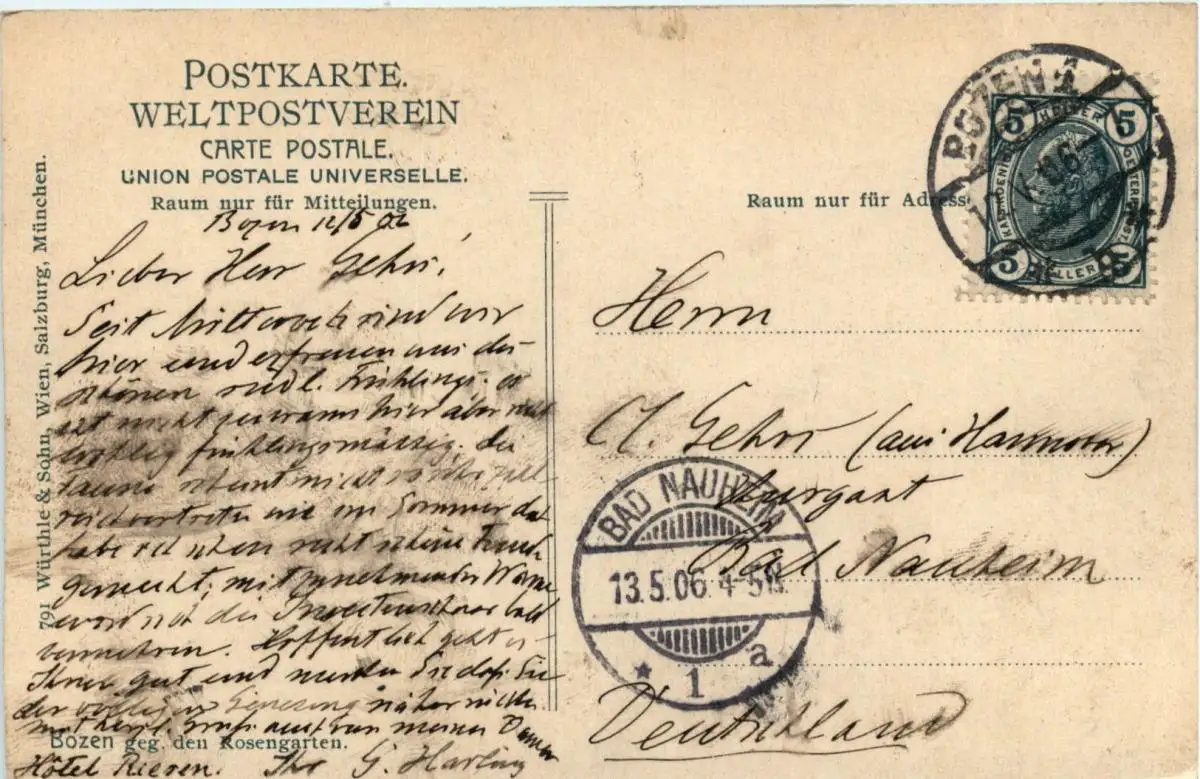 POSTKARTE.
WELTPOSTVEREIN
CARTE POSTALE.
UNION POSTALE UNIVERSELLE.
Raum nur für Mitteilungen.
Bozen 12/5 06
Lieber Herr Gehrs,
Seit Mittwoch sind wir
hier und erfreuen uns des
schönen südl. Frühlings. es
ist nicht zu warm hier aber
frühlingsmässig. Die
Fauna scheint nicht so
reich vertreten wie im Sommer doch
habe ich schon recht schöne
gemacht; mit zunehmender Wärme
wird sich die Insektenschaar bald
vermehren. Hoffentlich geht es
Ihnen gut und Sie daß Sie
der völligen Genesung näher
mit herzl. Gruß auch von meinen Damen
Hôtel Riesen. Ihr G. Harling
Bozen geg den Rosengarten.
791 Würthle & Sohn, Wien, Salzburg, München.
Raum nur für Adresse
Herrn
C. Gehrs (aus Hannover)
Kurgast
Bad Nauheim
Deutschland
BOZEN 1
06
5 HELLER 5
5 HELLER 5
BAD NAUHEIM
13.5.06. 4-5N.
* 1 a